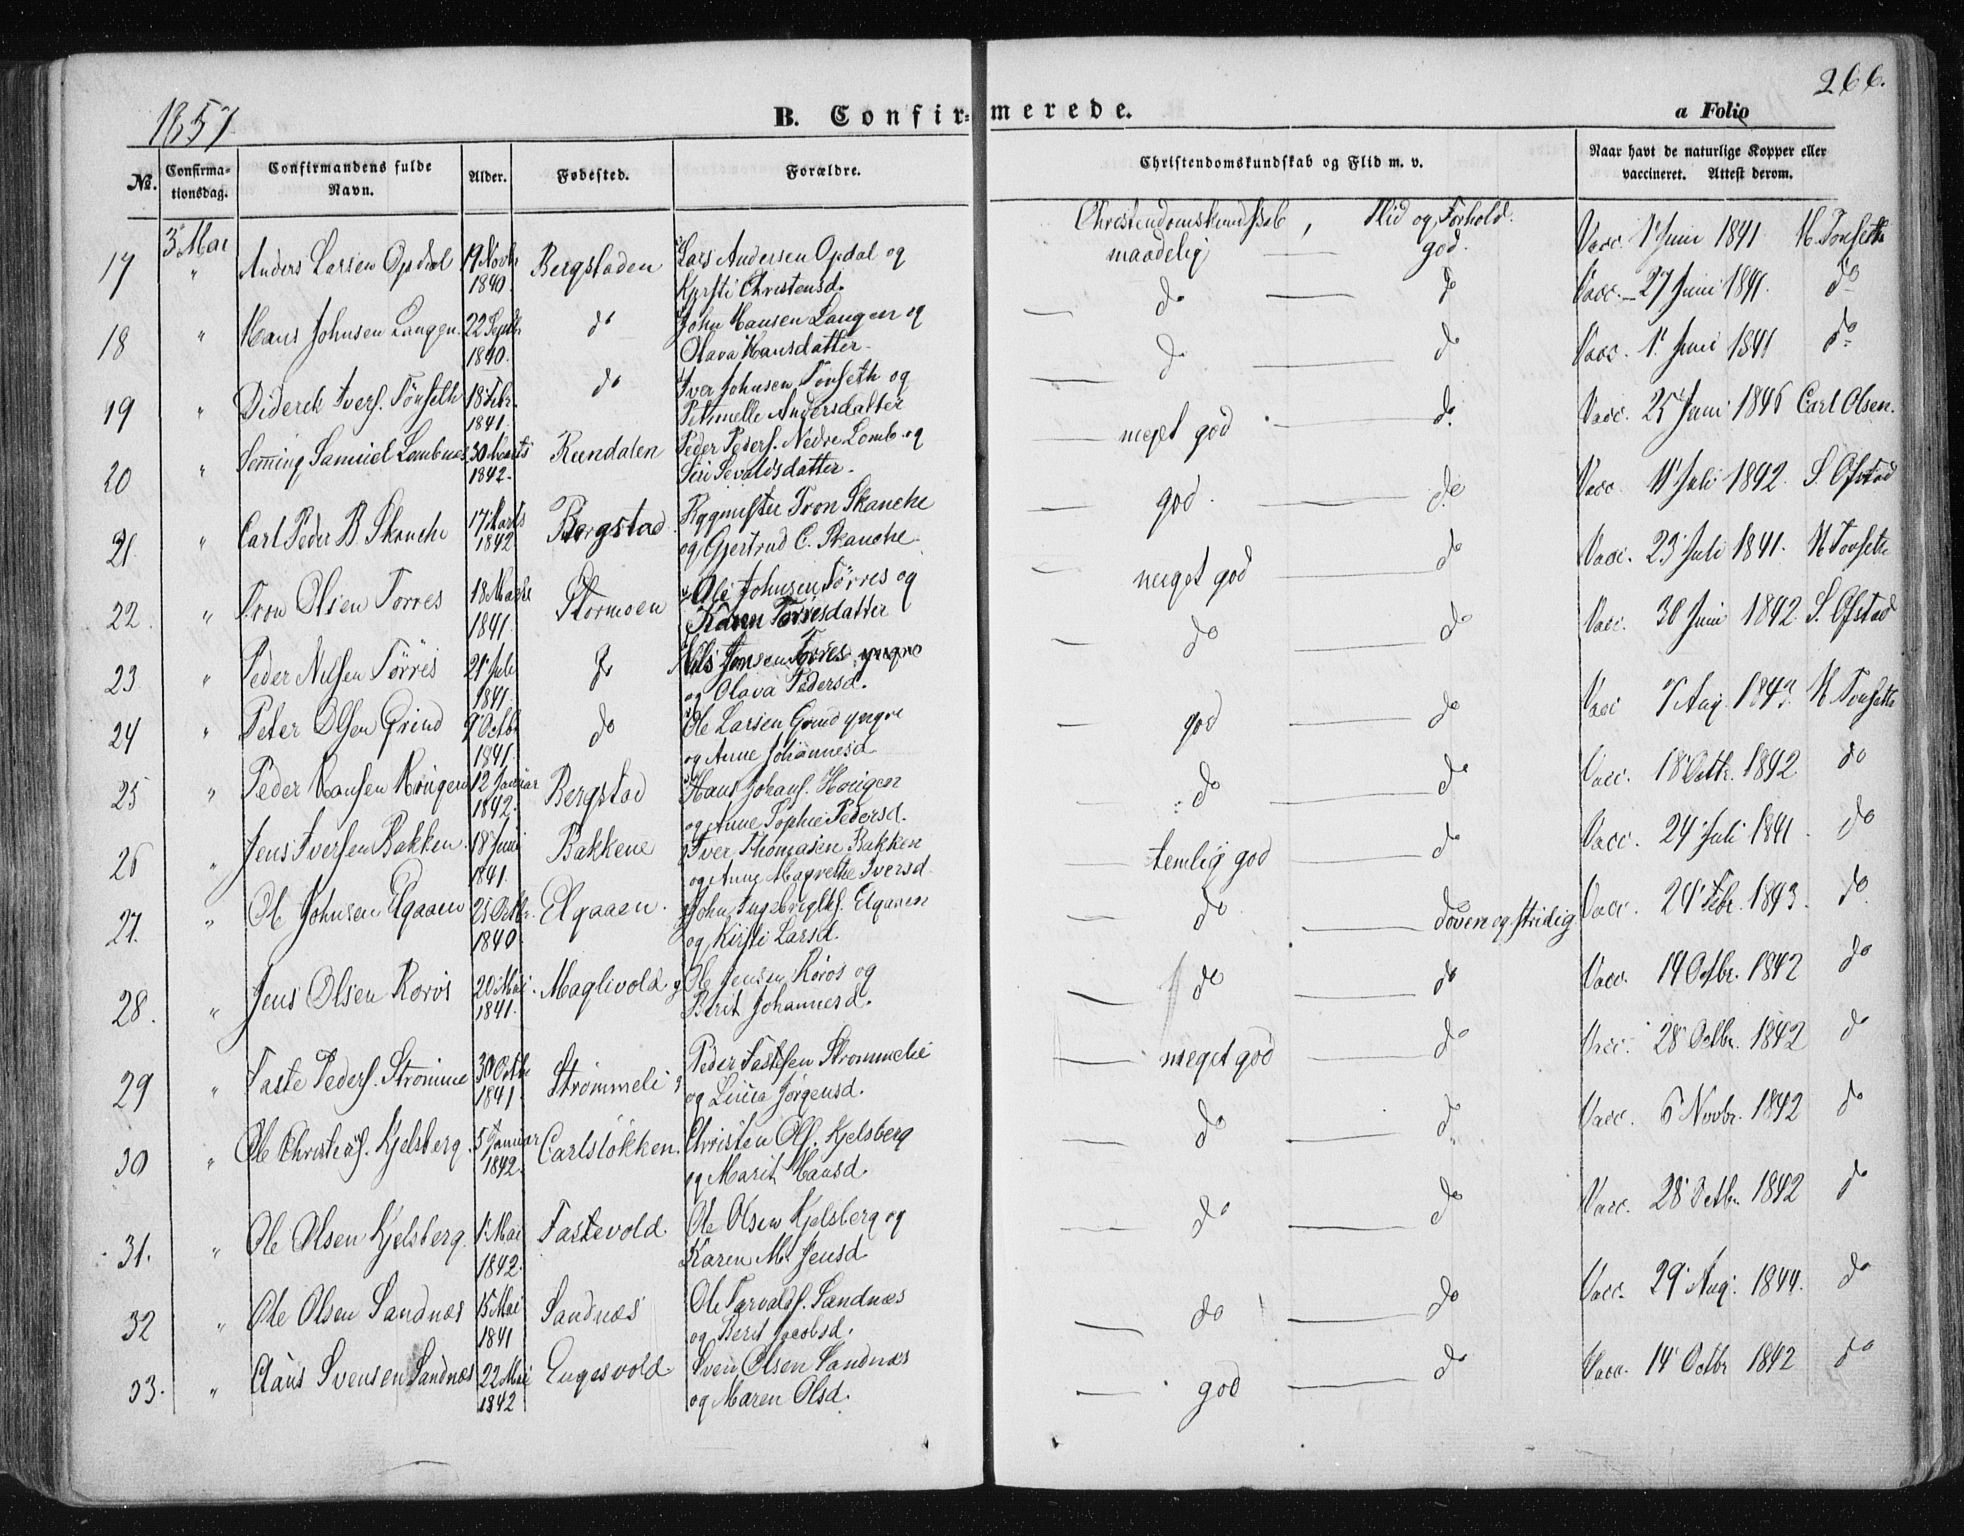 1857
266.
B. Confir=merede.
a Folio
No.
Confirma-tionsdag.
Confirmandens fulde Navn.
Alder.
Fødested.
Forældre.
Christendomskundskab og Flid m. v.
Naar havt de naturlige Kopper eller vaccineret. Attest derom.
3 Mai
Christendomskundskab, Flid og Forhold.
17 " Anders Larsen Opdal 19 Novbr 1840 Bergstaden Lars Andersen Opdal og
Kirsti Christensd.
maadelig — god. Vacc. 1 Juni 1841 H Tonseth
18 " Hans Johnsen Langen 22 Septbr 1840. do John Hansen Langen og
Olava Hansdatter.
— do — do Vacc. 27 Juni 1841. do
19 " Diderik Ivers. Tönseth 18 Febr. 1841. do Iver Johnsen Tonseth og
Petronelle Andersdatter
— do — do Vacc. 1 Juni 1841 do
20 " Samuel Lombnæs 30 Marts 1842. Rundalen Peder Peders. Nedre Lomb. og
Siri Sevaldsdatter.
— meget god — do. Vacc. 25 Juni 1846 Carl Olsen.
21 " Carl Peder B. Skanche 17 Marts 1842 Bergstad Tron Skanche
og Gjertrud C. Skanche.
— god. — do Vacc. 11 Juli 1842. S. Ofstad
22. " Tron Olsen Torres 18 Marts 1841. Stormoen Ole Johnsen Törres og
Karen Torresdatter
— meget god — do Vacc. 23 Juli 1841. H Tonseth
23 " Peder Nilsen Törris 21 Juli 1841. do Nils Jonsen Torres yngre
og Olava Pedersd.
— do — do Vacc. 30 Juni 1842 S. Ofstad
24 " Peter Olsen Grind 9 Octbr 1841. do Ole Larsen Grind yngre
og Anne Johannesd.
— god — do Vacc 7 Aug. 1843. H Tonseth
25 " Peder Hansen Hougen 12 Januar 1842. Bergstad Hans Johans. Hougen
og Anne Sophie Pedersd.
— do — do Vacc. 18 Octbr. 1842 do
26 " Jens Iversen Bakken 18 Juni 1841. Bakkene Iver Thomasen Bakken
og Anne Magrethe Iversd.
— temlig god — do Vacc. 24 Juli 1841. do
27. " Ole Johnsen Elgaaen 25 Octbr. 1840. Elgaaen. John Ingebrigts. Elgaaen
og Kirsti Larsd.
— do — doven og stridig Vacc. 24 Febr. 1843. do.
28. " Jens Olsen Rörös 20 Mai 1841. Maglivold Ole Jensen Röros og
Berit Johannesd.
— do — do Vacc. 14 Octbr. 1842 do
29 " Taste Peders. Strömme 30 Octbr 1841. Strømmeli Peder Tastesen Strømmelie
og Jörgensd.
— meget god — do Vacc. 28 Octbr. 1842 do
30 " Ole Christens. Kjelsberg. 5 Januar 1842. Carlslökken. Christen Ols. Kjelsberg
og Marit Hansd.
— do — do Vacc. 6 Novbr. 1842 do
31. " Ole Olsen Kjelsberg 1 Mai 1842. Fastevold. Ole Olsen Kjelsberg og
Karen M. Jensd.
— do — do Vacc. 28 Octbr. 1842 do
32 " Ole Olsen Sandnæs 15 Mai 1841 Sandnæs Ole Tarvalds. Sandnæs
og Berit Jacobsd.
— do — do Vacc. 29 Aug. 1844. do
33. " Claus Svensen Sandnæs 22 Mai 1842 Engesvold. Sven Olsen Sandnæs
og Maren Olsd.
— god — do Vacc. 14 Octbr 1842 do